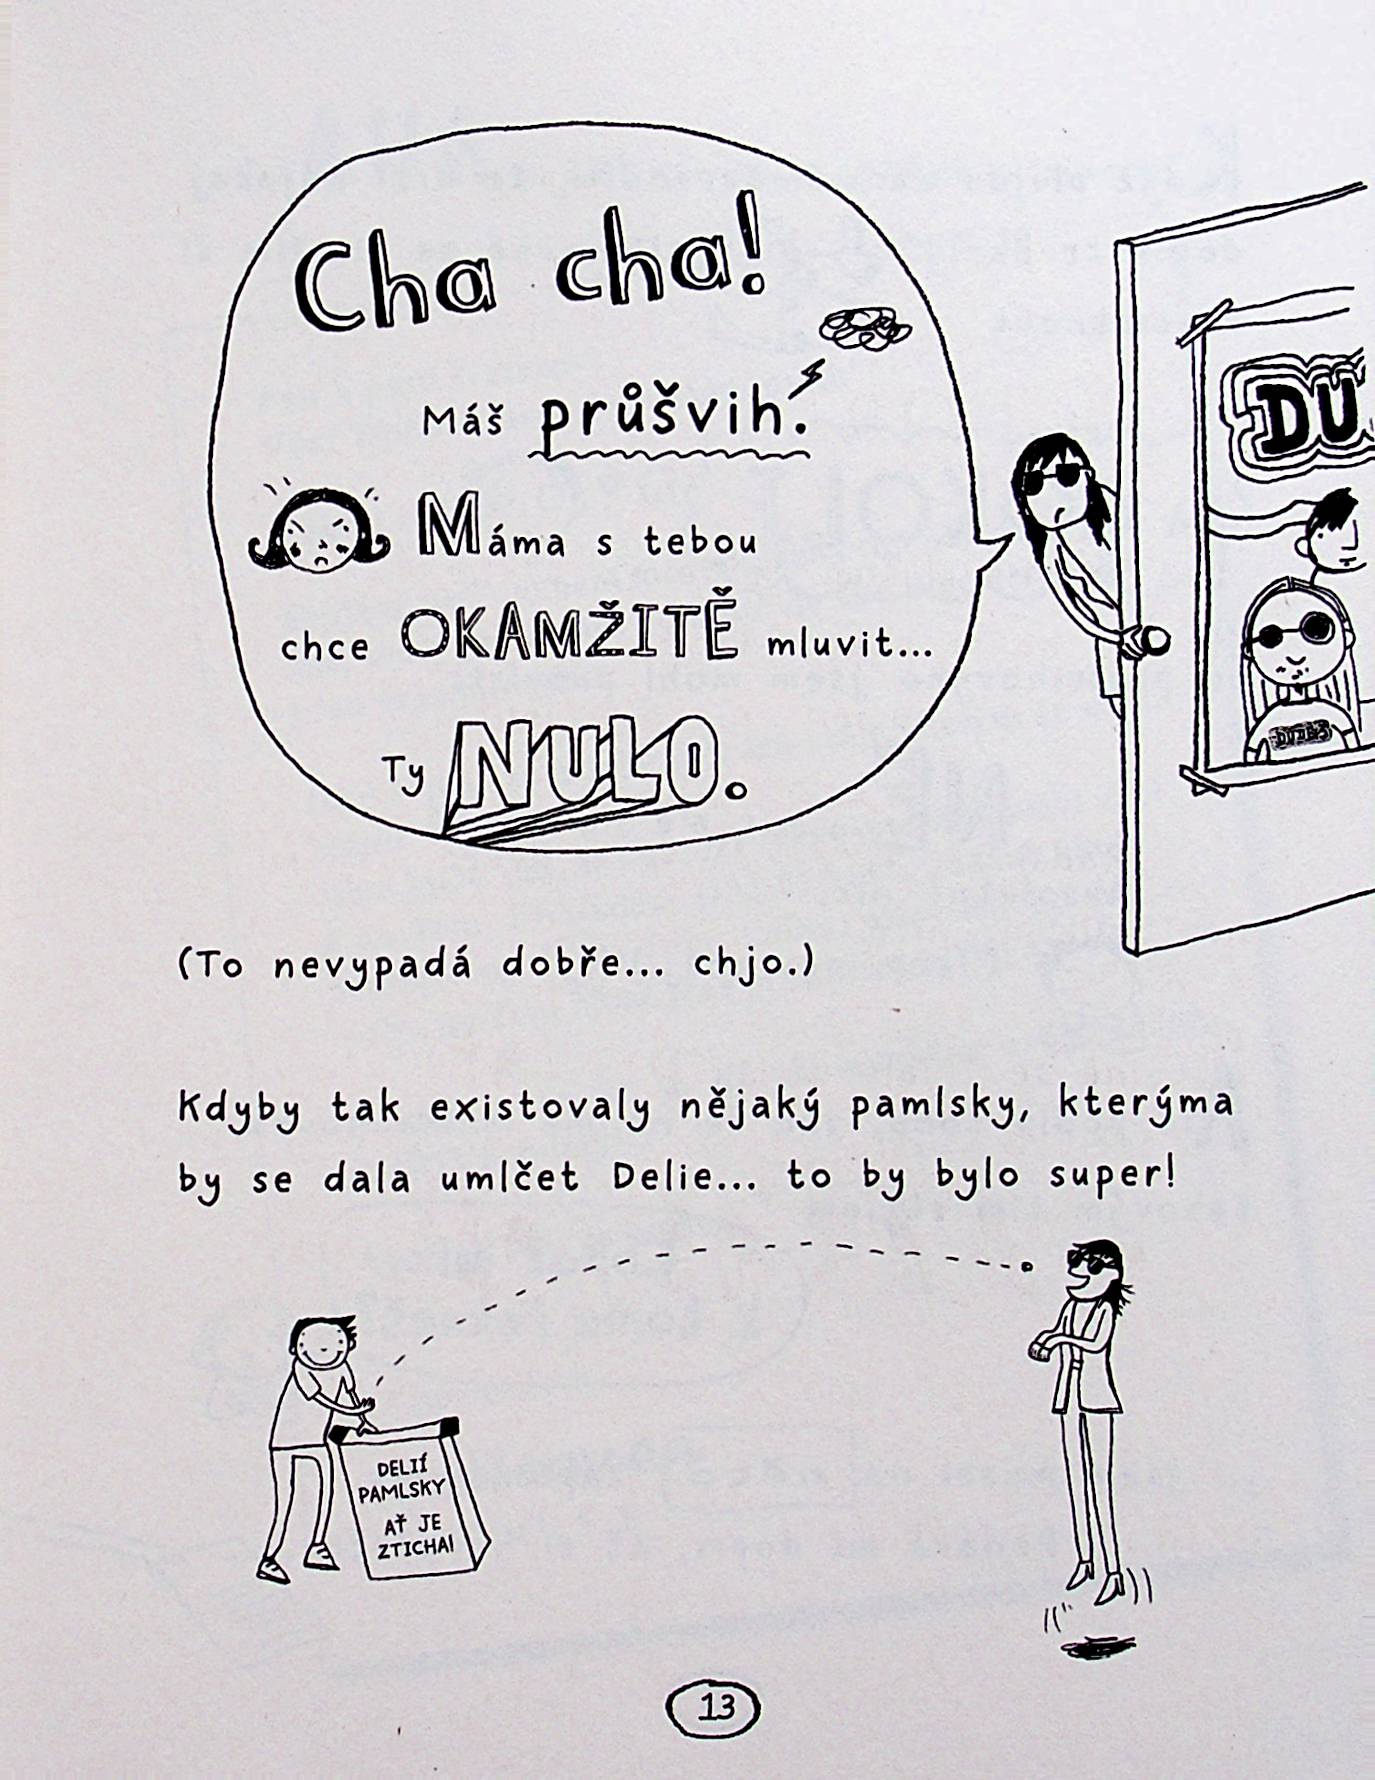 Cha cha!
Máš průšvih.
Máma s tebou
chce OKAMŽITĚ mluvit...
Ty NULO.
DU
DUDES
(To nevypadá dobře... chjo.)
Kdyby tak existovaly nějaký pamlsky, kterýma
by se dala umlčet Delie... to by bylo super!
DELIÍ
PAMLSKY
AŤ JE
ZTICHA!
13